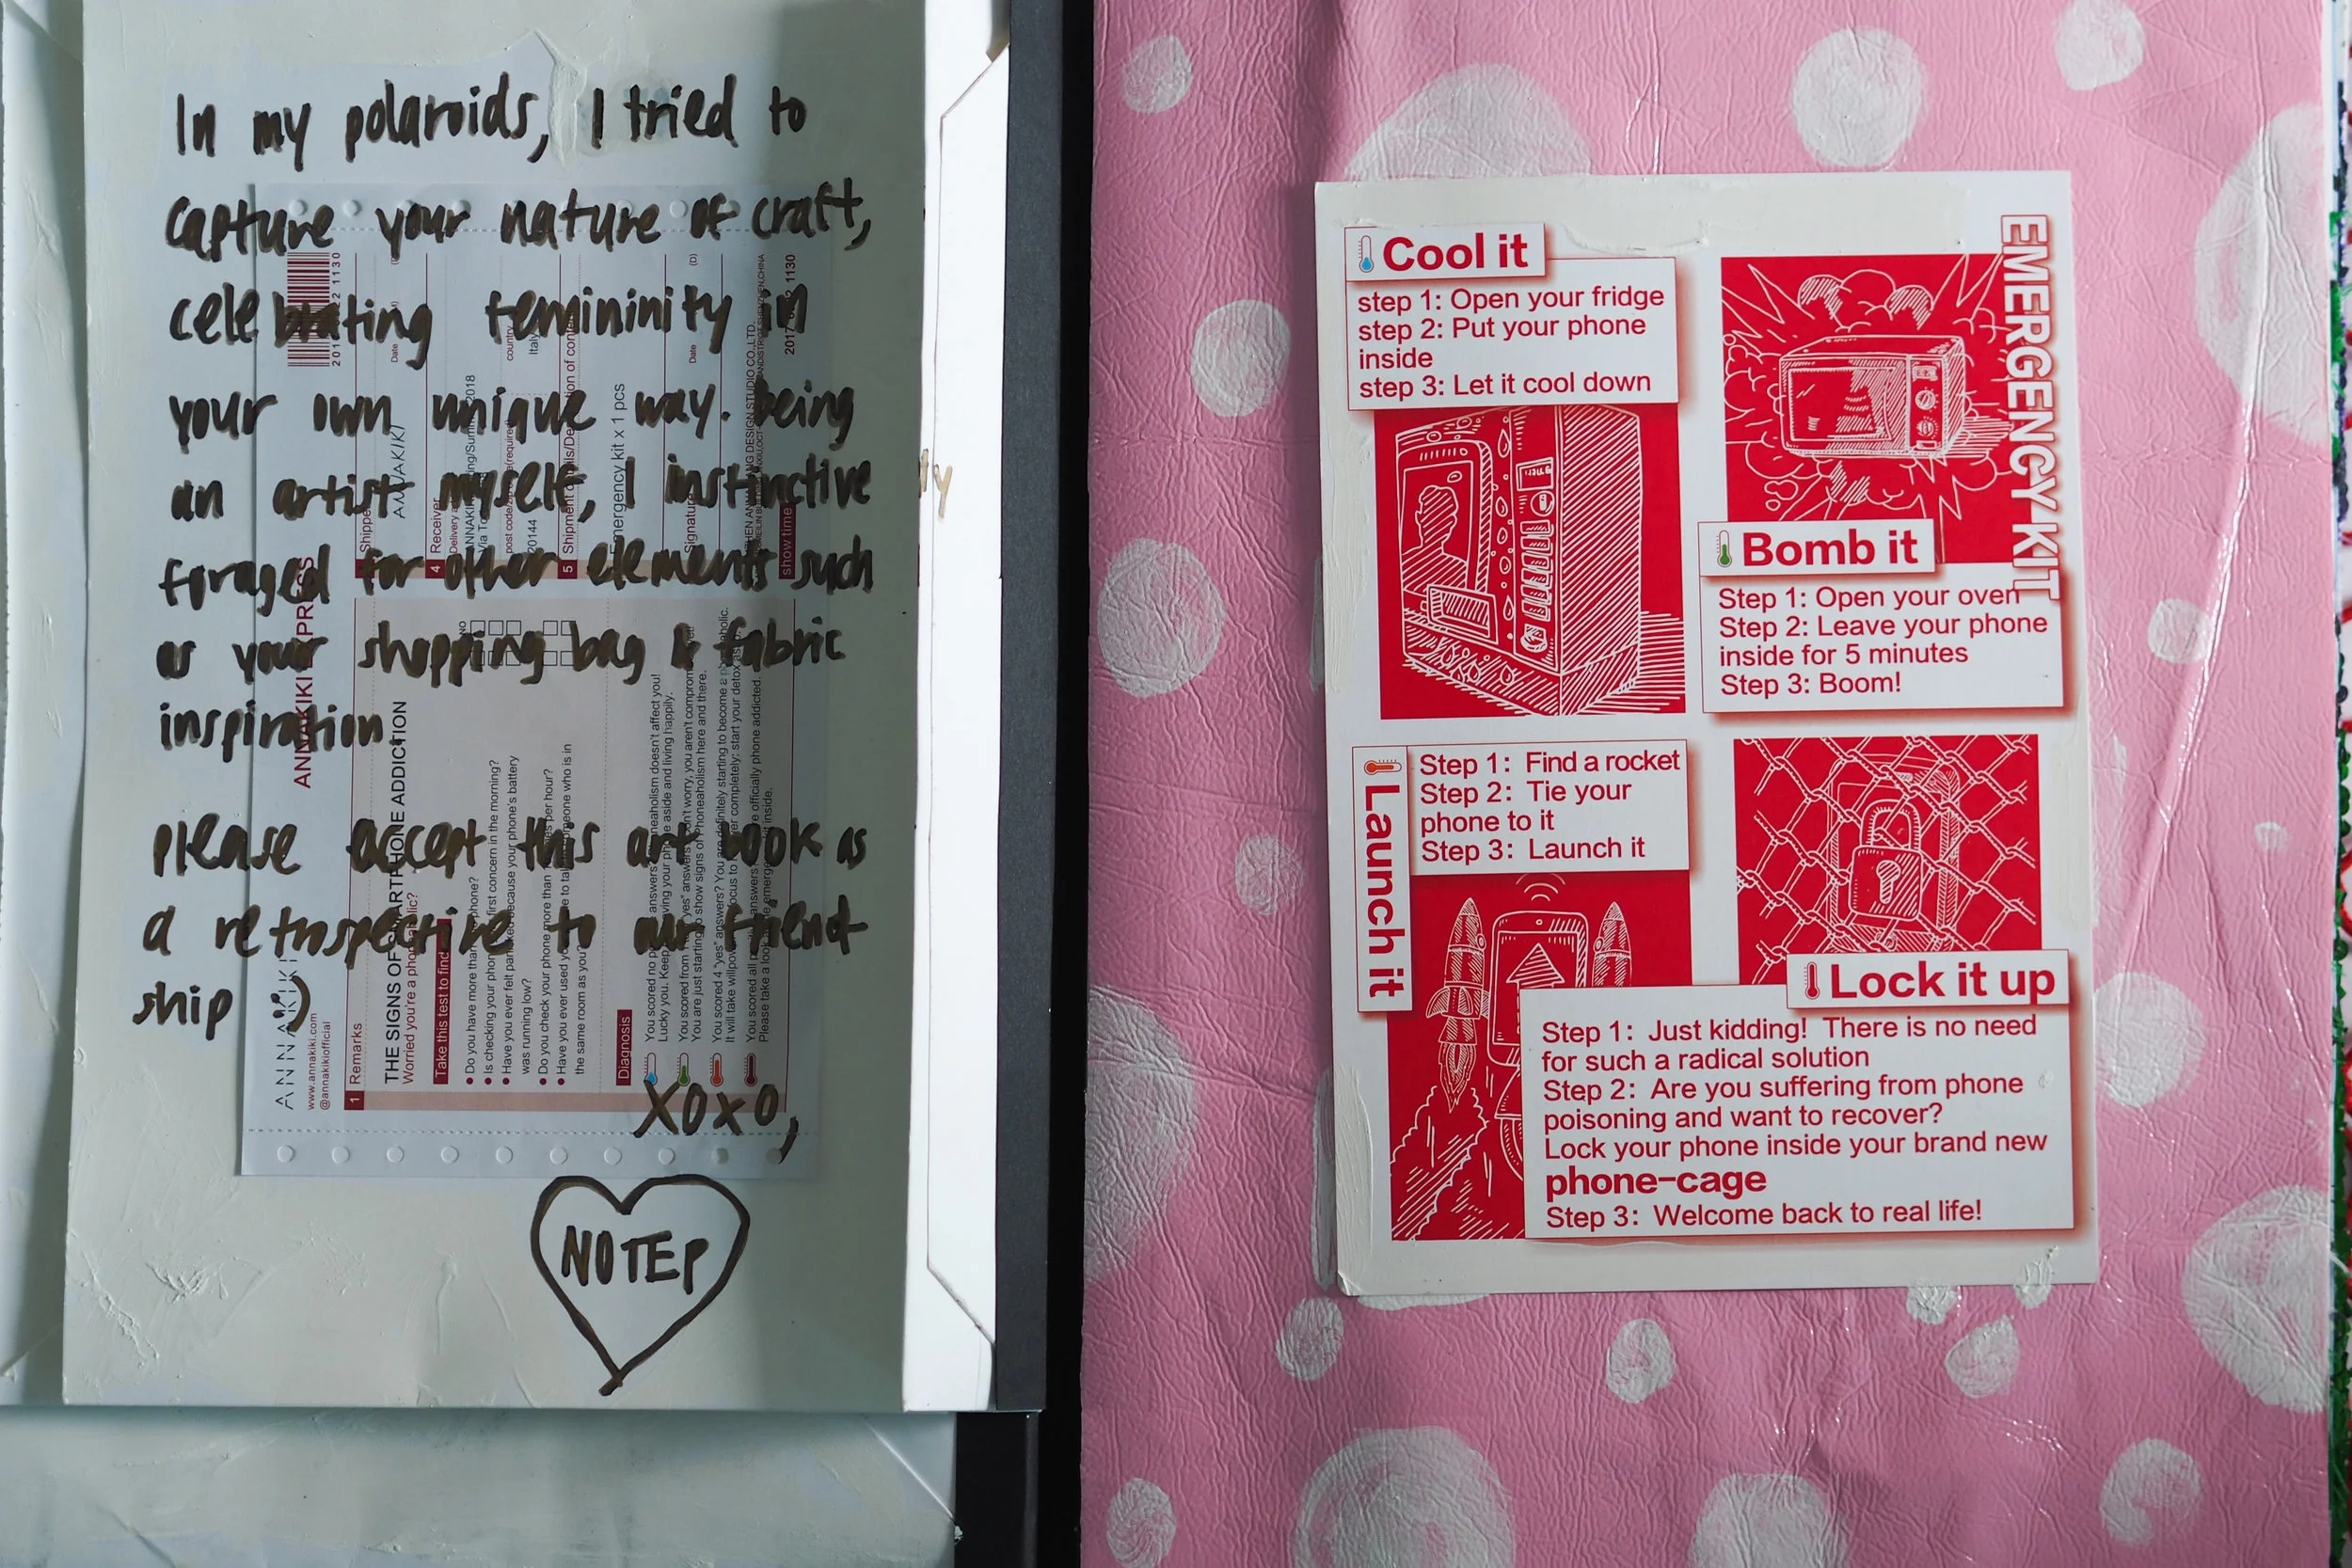 In my polaroids, I tried to
capture your nature of craft,
celebrating femininity in
your own unique way. Being
an artist myself, I instinctive ly
foraged for other elements such
as your shopping bag & fabric
inspiration.
please accept this art book as
a retrospective to our friend
ship :)
XOXO,
NOTEP
ANNAKIKI
www.annakiki.com
@annakikiofficial
ANNAKIKI
1 Remarks
THE SIGNS OF SMARTPHONE ADDICTION
Worried you're a
Take this test to find
Do you have more than phone?
Is checking your phone first concern in the morning?
Have you ever felt because your phone's battery
was running low?
Do you check your phone more than per hour?
Have you ever used to someone who is in
the same room as you?
Diagnosis
You scored no answers doesn't affect you!
Lucky you. Keep your phone aside and living happily.
You scored from "yes" answers worry, you aren't
You are just starting to show signs of Phoneaholism here and there.
You scored 4 "yes" answers? You are definitely starting to become a
It will take willpower focus to completely: start your detox
You scored all answers officially phone addicted.
Please take a look inside.
Date
4 Receiver
20144
country
5 Shipment
Emergency kit x 1 pcs
Signature
Date (D)
show time
2017 1130
EMERGENCY KIT
Cool it
step 1: Open your fridge
step 2: Put your phone
inside
step 3: Let it cool down
Bomb it
Step 1: Open your oven
Step 2: Leave your phone
inside for 5 minutes
Step 3: Boom!
Launch it
Step 1: Find a rocket
Step 2: Tie your
phone to it
Step 3: Launch it
Lock it up
Step 1: Just kidding! There is no need
for such a radical solution
Step 2: Are you suffering from phone
poisoning and want to recover?
Lock your phone inside your brand new
phone-cage
Step 3: Welcome back to real life!